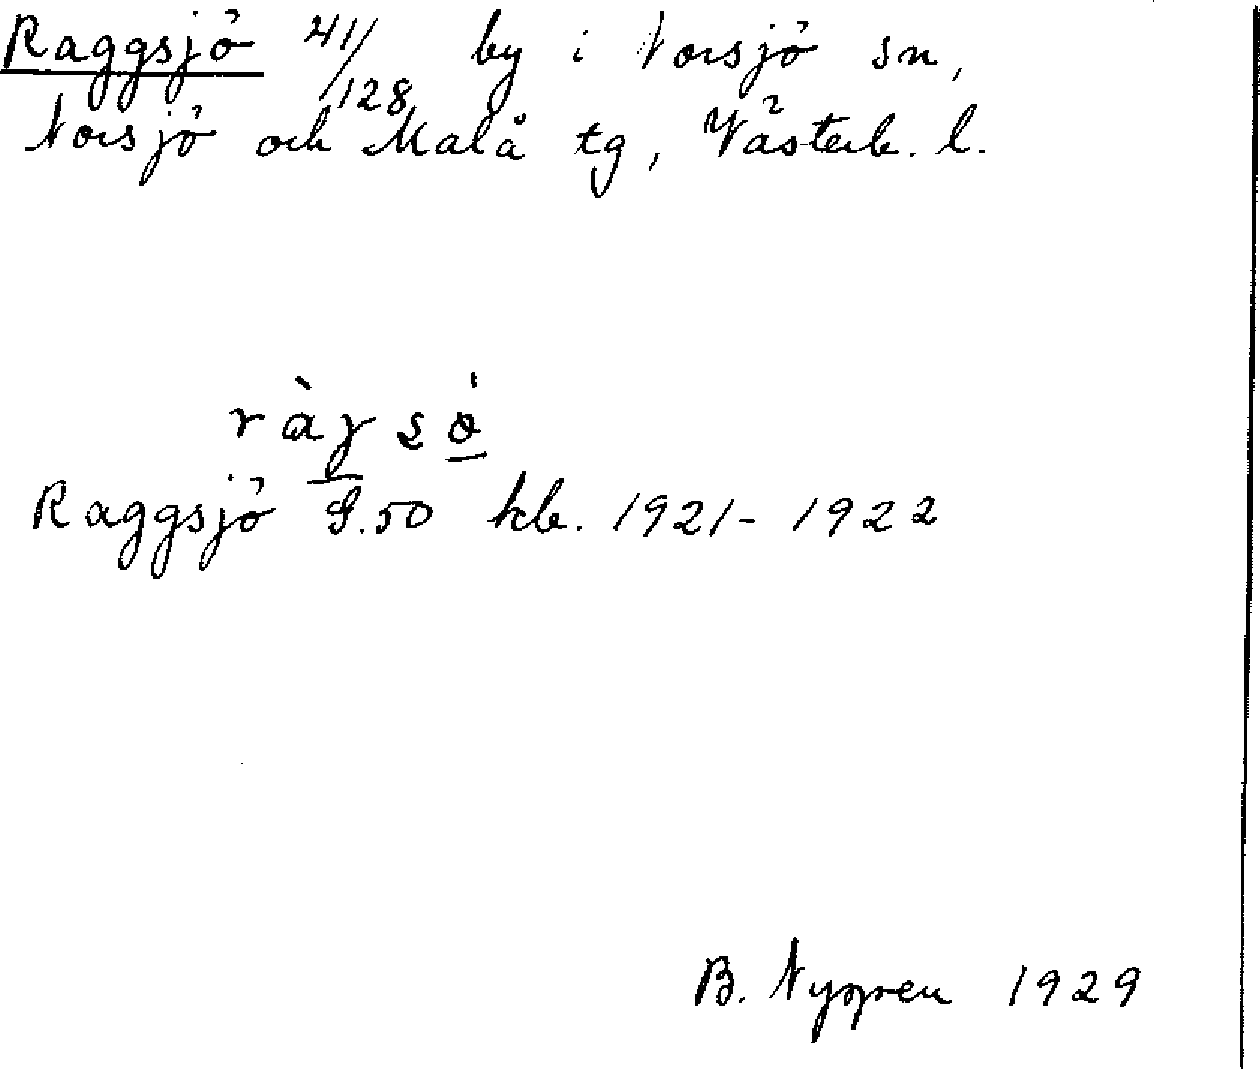 Raggsjö 41/128 by i Norsjö sn,
Norsjö och Malå tg, Västerb. l.
Raggsjö S.50 kb. 1921-1922
B. 1929